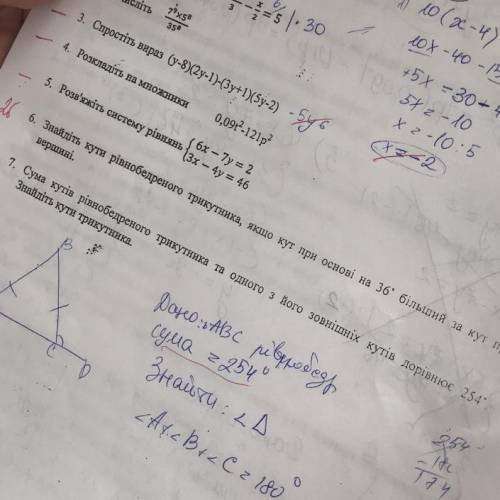 числіть 7⁹×5⁸
35⁸
3 - x/2 = 5 | · 30
3. Спростіть вираз (y-8)(2y-1)-(3y+1)(5y-2)
4. Розкладіть на множники 0,09t²-121p²
5. Розв'яжіть систему рівнянь {6x – 7y = 2
3x – 4y = 46
6. Знайдіть кути рівнобедреного трикутника, якщо кут при основі на 36° більший за кут п
вершині.
7. Сума кутів рівнобедреного трикутника та одного з його зовнішніх кутів дорівнює 254°
Знайдіть кути трикутника.
10(x-4)
10x-40-15
+5x = 30-4
5x = -10
x = -10:5
x = -2
26
B
C
D
Дано: △ABC рівнобедр
сума = 254°
Знайти: <△
<A+<B+<C=180°
254
- 180
174